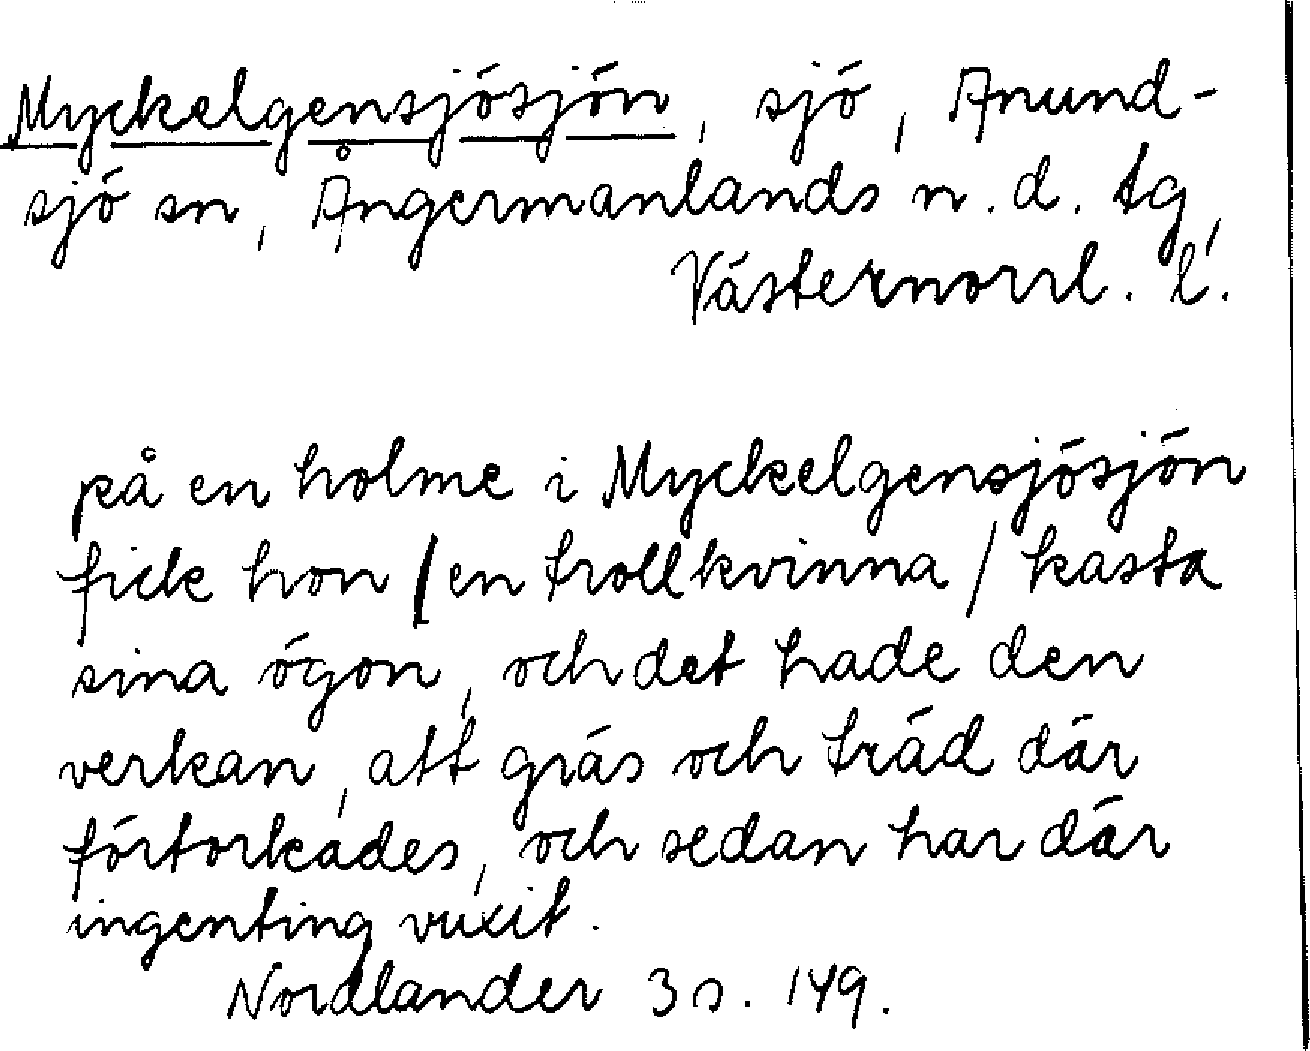 Myckelgensjösjön, sjö, Anund-
sjö sn, Ångermanlands n. d. tg,
Västernorrl. l.
på en holme i Myckelgensjösjön
fick hon /en trollkvinna/ kasta
sina ögon, och det hade den
verkan, att gräs och träd där
förtorkades, och sedan har där
ingenting vuxit.
Nordlander 3 s. 149.